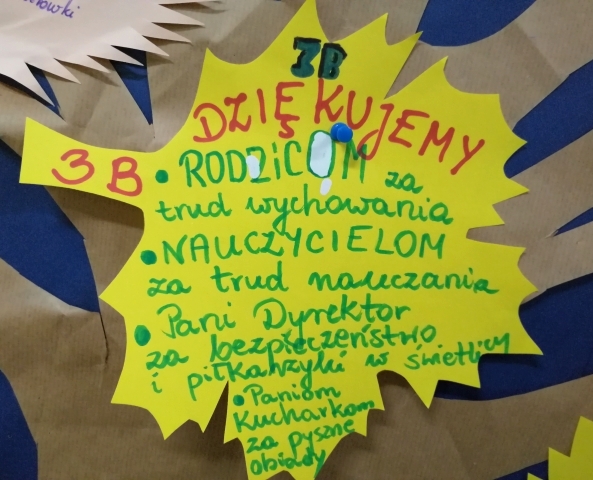 łowki
3B
DZIĘKUJEMY
3B
• RODZICOM za
trud wychowania
• NAUCZYCIELOM
za trud nauczania
• Pani Dyrektor
za bezpieczeństwo
i piłkarzyki w świetlicy
• Paniom
Kucharkom
za pyszne
obiady